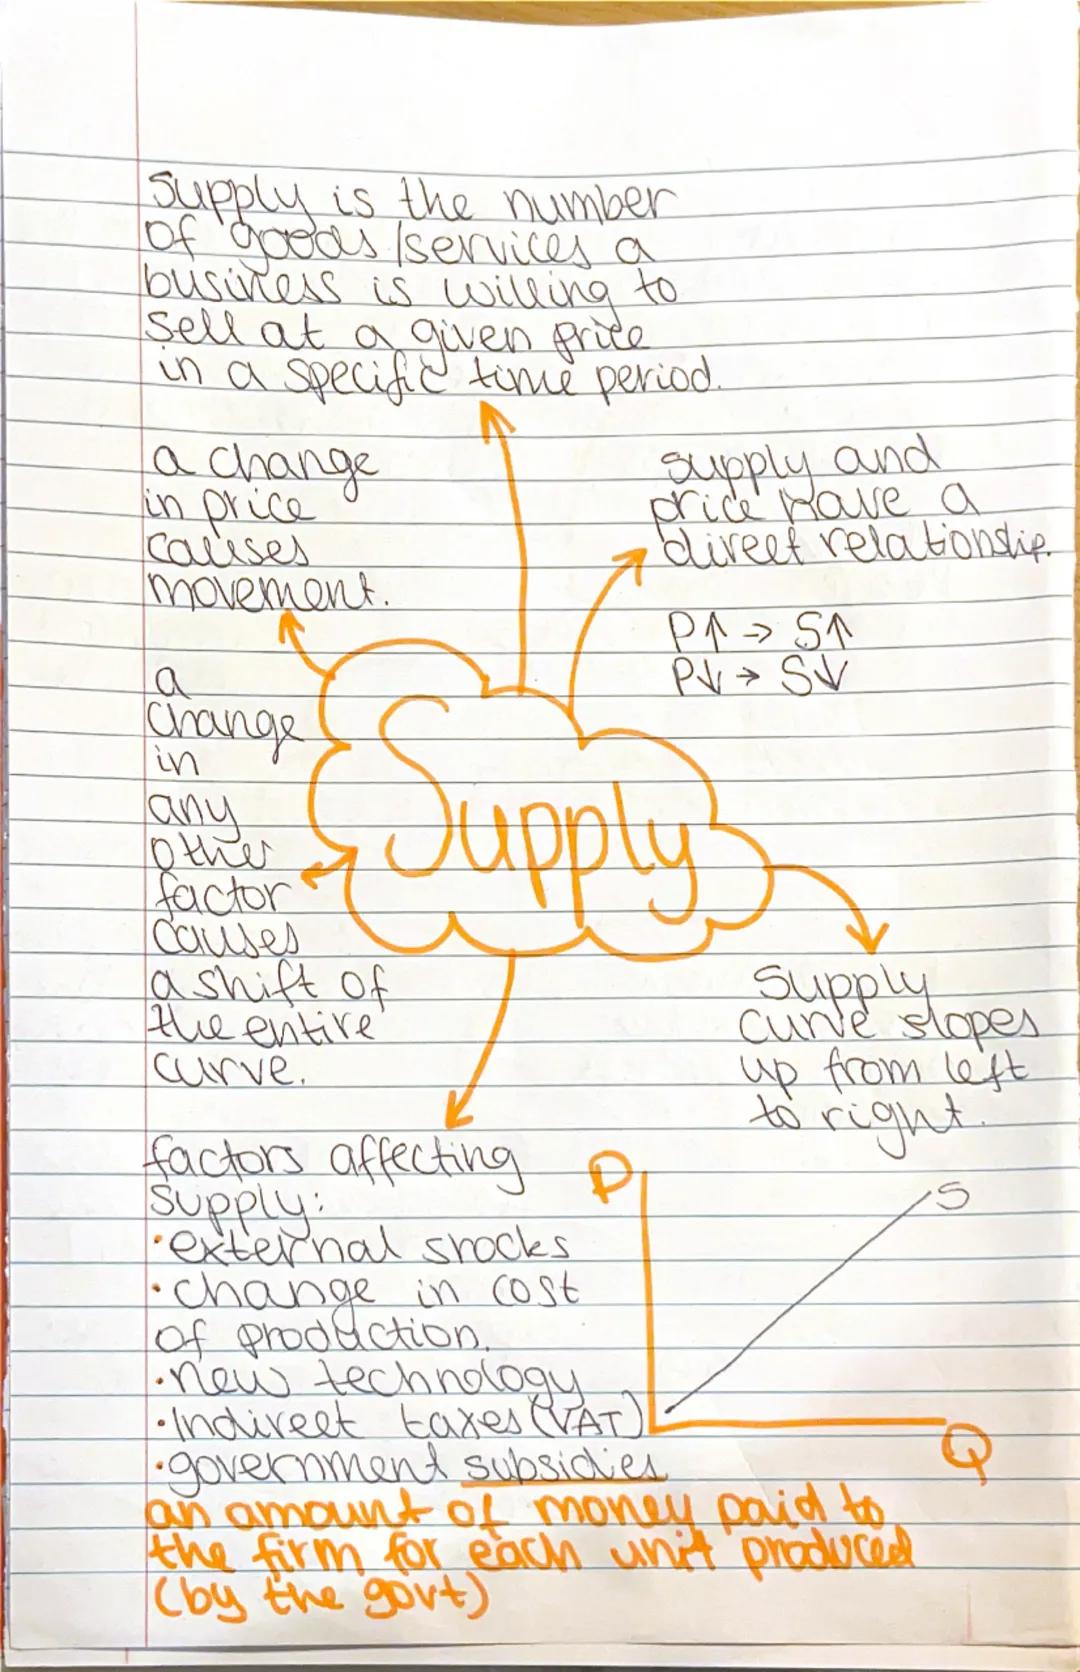 Supply is the number
of goods/services a
business is willing to
sell at a given price
in a specific time period.
a change
in price
causes
movement.
supply and
price have a
direct relationship.
P↑ → S↑
P↓ → S↓
a
change
in
any
other
factor
causes
a shift of
the entire
curve.
Supply
Supply
curve slopes
up from left
to right.
factors affecting
supply:
·external shocks
·change in cost
of production.
·new technology
·Indirect taxes (VAT)
·government subsidies
an amount of money paid to
the firm for each unit produced
(by the govt)
P
S
Q